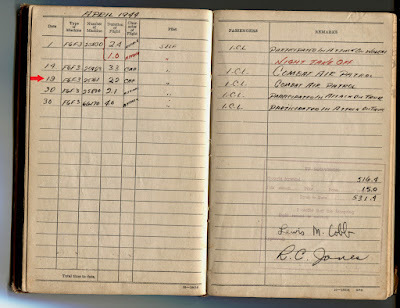 APRIL 1944
Date Type of Machine Number of Machine Duration of Flight Character of Flight Pilot PASSENGERS REMARKS
1 F6F3 2.4 SELF I.C.L. PARTICIPATED IN ATTACK ON
1.0 " NIGHT TAKE OFF
19 F6F3 3.3 CAP " I.C.L. COMBAT AIR PATROL
19 F6F3 2.9 CAP " I.C.L. COMBAT AIR PATROL
30 F6F3 2.1 " I.C.L. PARTICIPATED IN ATTACK ON TRUK
30 F6F3 4.0 " I.C.L. PARTICIPATED IN ATTACK ON TRUK
516.4
15.0
531.4
Lewis M. Cobb
R. C. Jones
Total time to date,